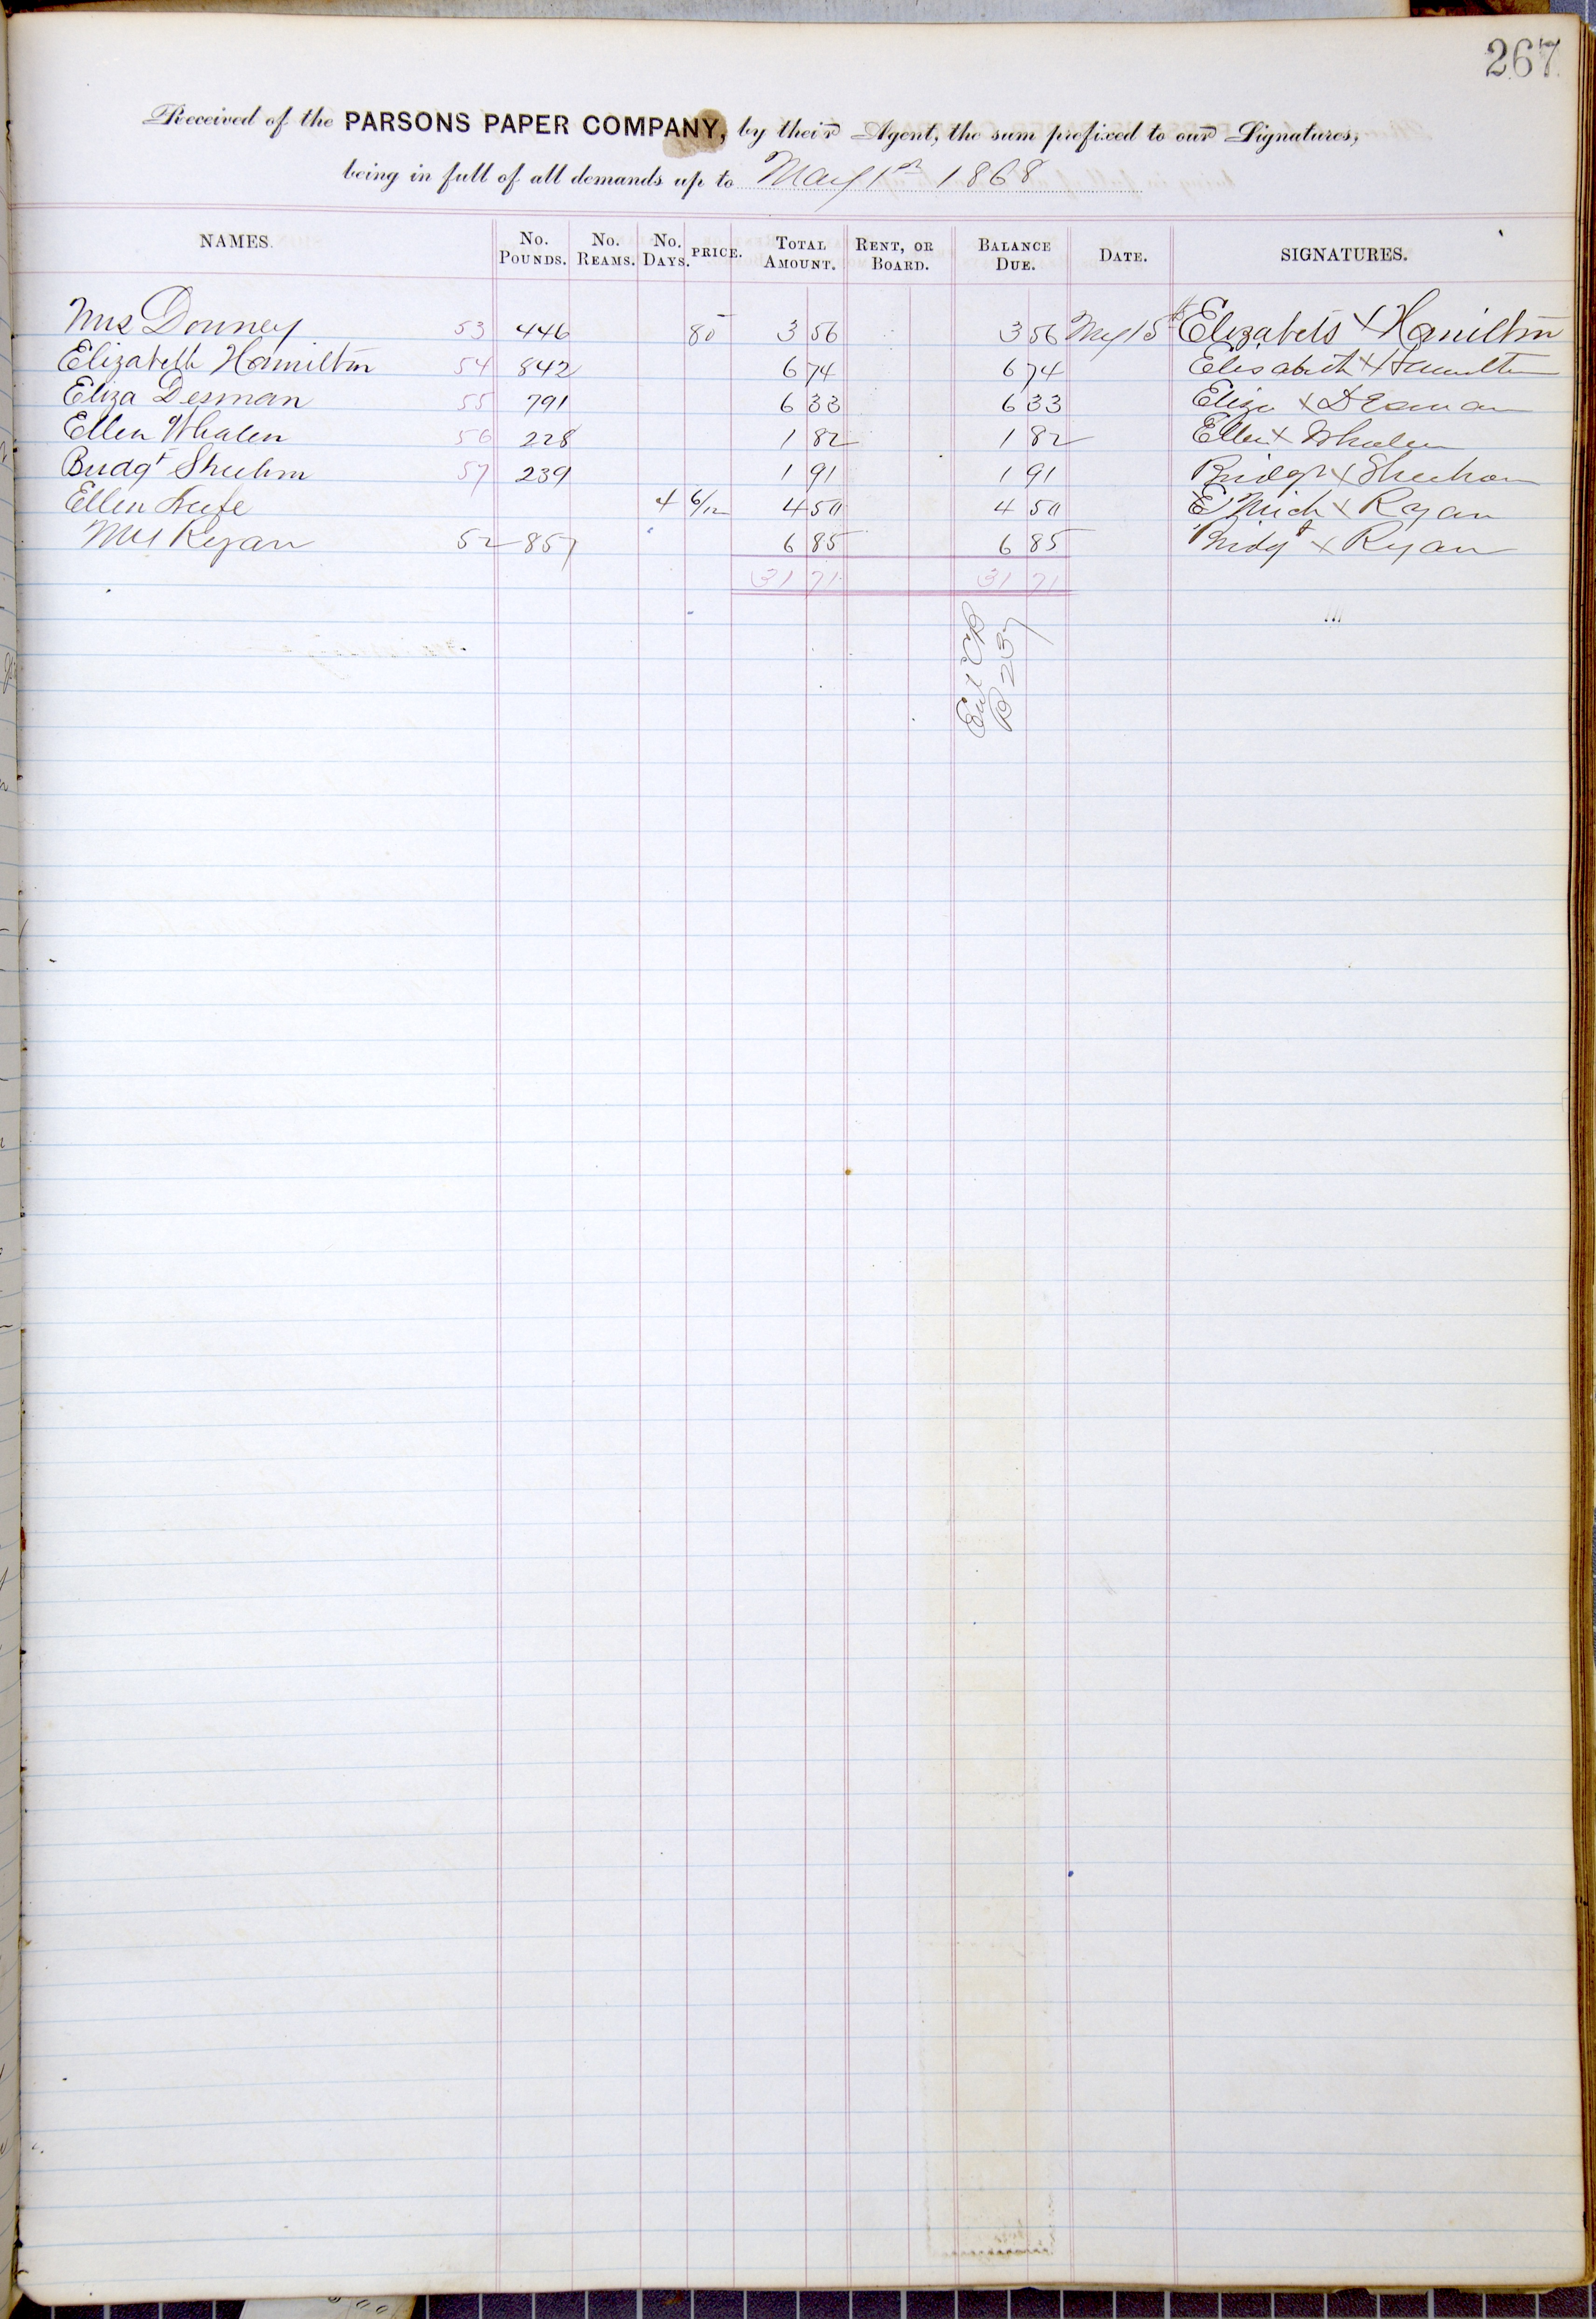 267
Received of the PARSONS PAPER COMPANY, by their Agent, the sum prefixed to our Signatures,
being in full of all demands up to May 1st 1868
NAMES. No. POUNDS. No. REAMS. No. DAYS. PRICE. TOTAL AMOUNT. RENT, OR BOARD. BALANCE DUE. DATE. SIGNATURES.
Mrs Donney 53 446 80 3 56 3 56 May 15th Elizabeth X Hamilton
Elizabeth Hamilton 54 842 6 74 6 74 Elisabeth X Hamilton
Eliza Desman 55 791 6 33 6 33 Eliza X Desman
Ellen Whalen 56 228 1 82 1 82 Ellen X Whalen
Bridgt Sheehan 57 239 1 91 1 91 Bridgt X Sheehan
Ellen 4 6/12 4 50 4 50 Mich X Ryan
Mrs Ryan 52 857 6 85 6 85 Bridgt X Ryan
31 71 31 71
Ent CB
P 237